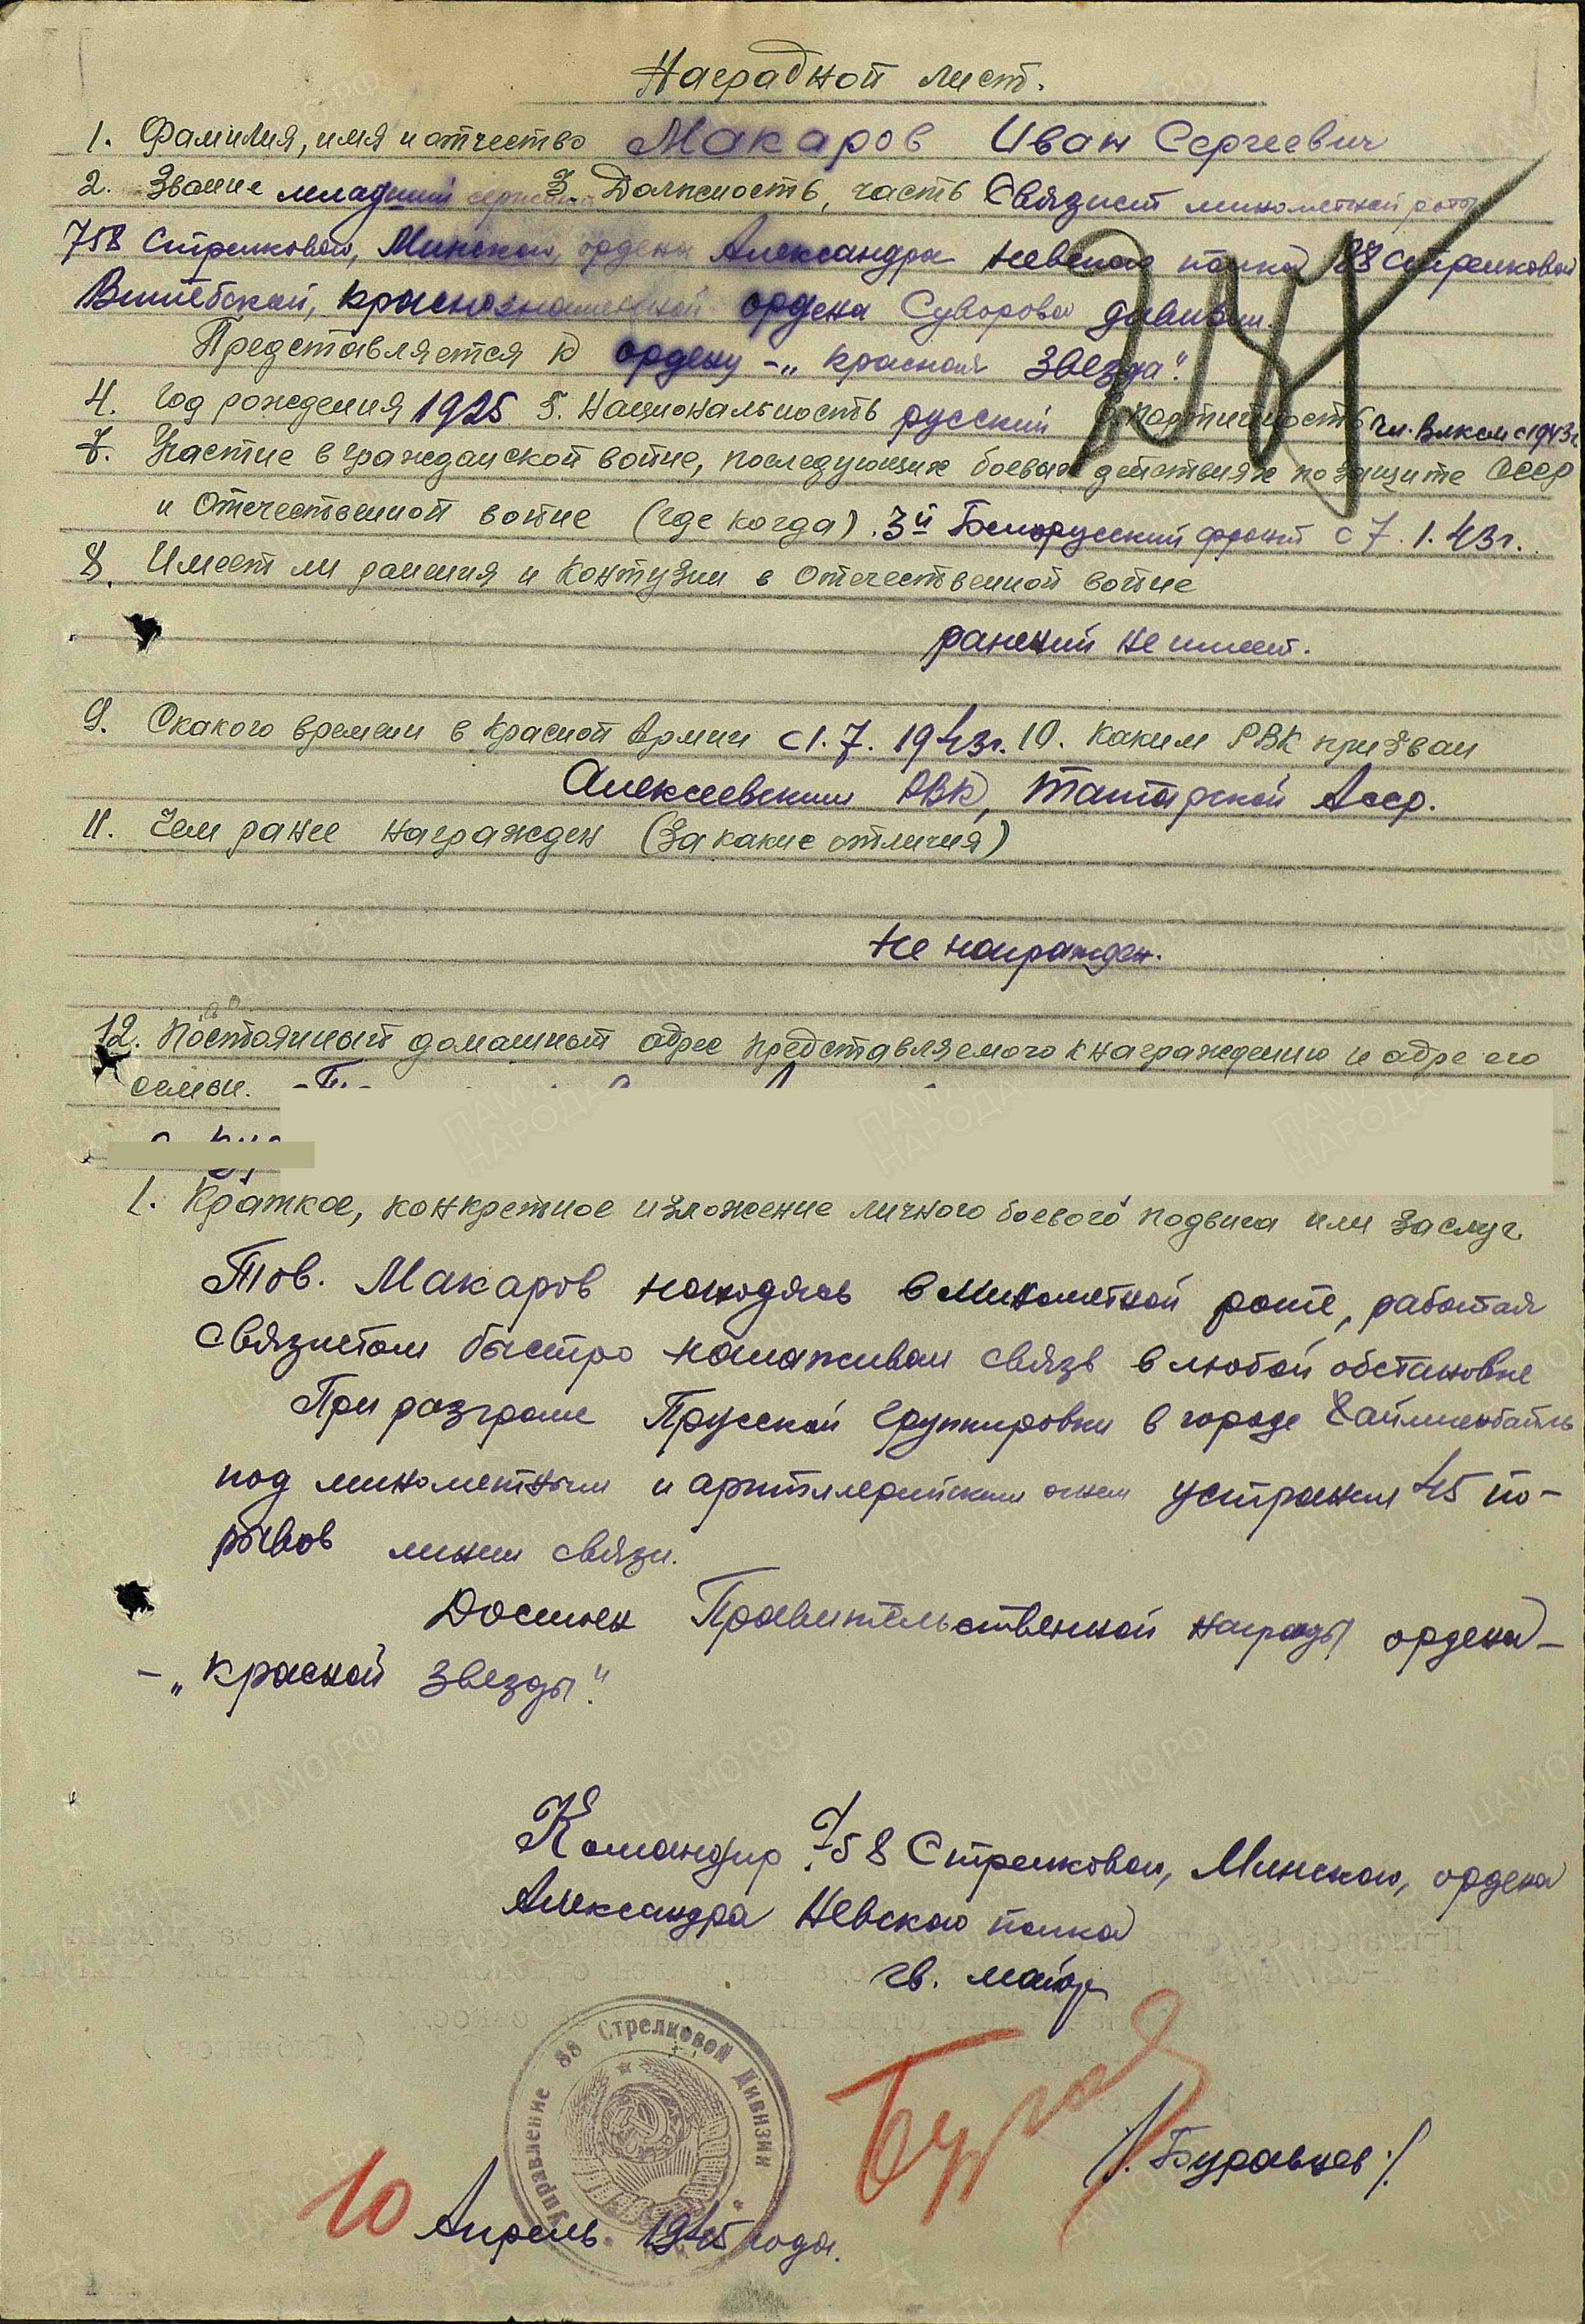 Наградной лист.
1. Фамилия, имя и отчество Макаров Иван Сергеевич
2. Звание младший сержант 3. Должность, часть Связист минометной роты
758 Стрелкового, Минского, ордена Александра Невского полка 88 Стрелковой
Витебской, краснознаменной ордена Суворова дивизии.
Представляется к ордену - „Красная Звезда".
4. Год рождения 1925 5. Национальность русский 6 партийность чл. Влксм с 1943г
7. Участие в гражданской войне, последующих боевых действиях по защите СССР
и Отечественной войне (где когда). 3й Белорусский фронт с 7.1.43г.
8. Имеет ли ранения и контузии в Отечественной войне
ранений не имеет.
9. Скакого времени в Красной Армии с 1.7.1943г. 10. Каким РВК призван
Алексеевским РВК, Татарской Асср.
11. Чем ранее награжден (за какие отличия)
Не награжден.
12. Постоянный домашный адрес представляемого к награждению и адре его
семьи.
1. Краткое, конкретное изложение личного боевого подвига или заслуг
Тов. Макаров находясь в минометной роте, работая
связистом быстро налаживал связь в любой обстановке
При разгроме Прусской группировки в городе Хайлигенбайль
под минометным и артиллерийским огнем устранил 45 по-
рывов линии связи.
Достоен Правительственной награды ордена -
- „Красной Звезды".
Командир 758 Стрелкового, Минского, ордена
Александра Невского полка
гв. майор
/Буравцев/
Управление 88 Стрелковой Дивизии
10 Апрель 1945 года.
ЦАМО.РФ
ПАМЯТЬ НАРОДА